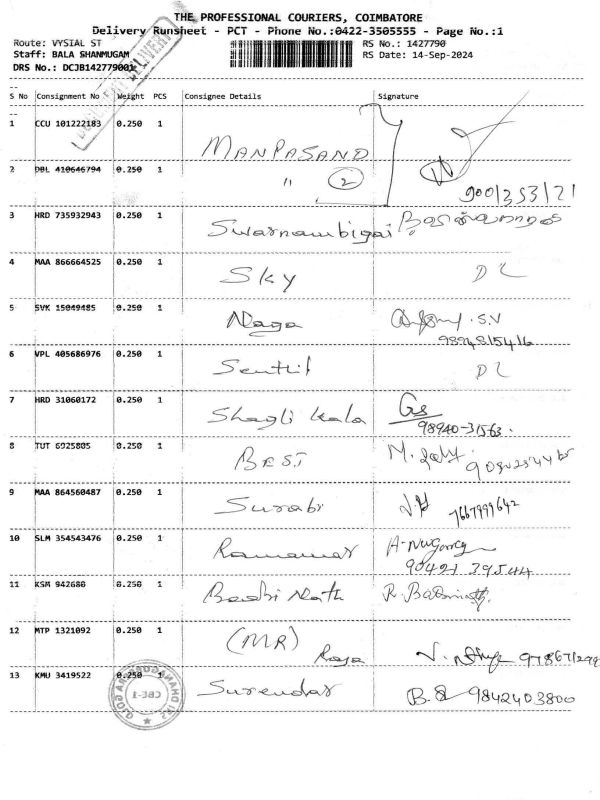 THE PROFESSIONAL COURIERS, COIMBATORE
Delivery Runsheet - PCT - Phone No.:0422-3505555 - Page No.:1
Route: VYSIAL ST RS No.: 1427790
Staff: BALA SHANMUGAM RS Date: 14-Sep-2024
DRS No.: DCJB142779001
S No Consignment No Weight PCS Consignee Details Signature
1 CCU 101222183 0.250 1 MANPASAND
2 DBL 410646794 0.250 1 " 2 900135317 21
3 HRD 735932943 0.250 1 Swarnambigai
4 MAA 866664525 0.250 1 Sky DL
5 SVK 15049485 0.250 1 Naga S.V
9894815416
6 VPL 405686976 0.250 1 Senthil DL
7 HRD 31060172 0.250 1 Shagli kala GS
98940-31563.
8 TUT 6925805 0.250 1 BEST M.
9 MAA 864560487 0.250 1 Surabi 7667999642
10 SLM 354543476 0.250 1 Ramamar
90421 39544
11 KSM 942680 0.250 1 Badri Nath R. Badrinath
12 MTP 1321092 0.250 1 (MR) Raja
13 KMU 3419522 0.250 1 Surendar B.S 9842403800
CBE-1